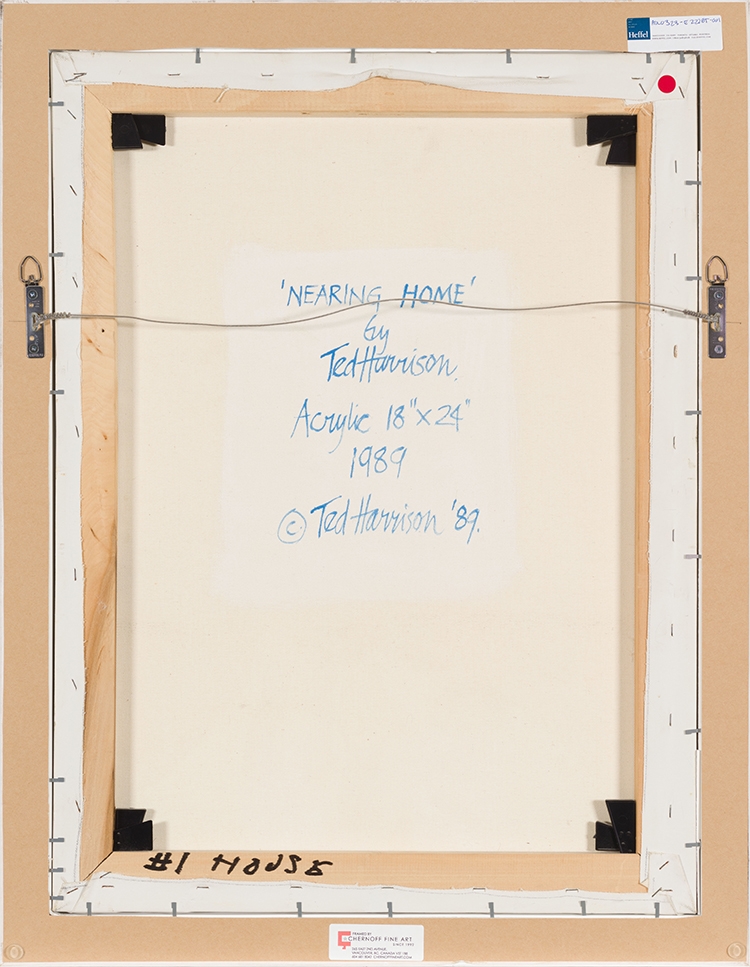 Heffel
'NEARING HOME'
by
Ted Harrison.
Acrylic 18" x 24"
1989
© Ted Harrison '89.
#1 HOUSE
FRAMED BY
CHERNOFF FINE ART
SINCE 1992